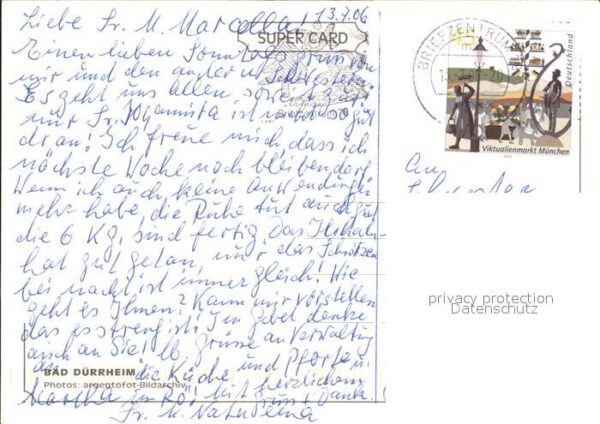 13.7.06
Liebe Sr. M. Marcella!
SUPER CARD
Einen lieben Sonntagsgruss von
mir und den anderen Schwestern.
Es geht uns allen soweit gut
nur Sr. Johannita ist nicht so gut
dran! Ich freue mich, dass ich
nächste Woche noch bleiben darf.
Wenn ich auch keine Anwendungen
mehr habe, die Ruhe tut auch gut
die 6 Kg. sind fertig, das
hat gut getan, nur das Schwitzen
bei nacht ist immer gleich! Wie
geht es Ihnen? Kann mir vorstellen
das es streng ist! Im Gebet denke
auch an Sie! lb Grüsse an Verwaltung
BAD DÜRRHEIM
die Küche und Pforte u.
Photos: argentofot-Bildarchiv
Martha im Mit herzlichem
Gruss u. Danke!
Sr. M.
BRIEFZENTRUM
45
Deutschland
Viktualienmarkt München
An
privacy protection
Datenschutz